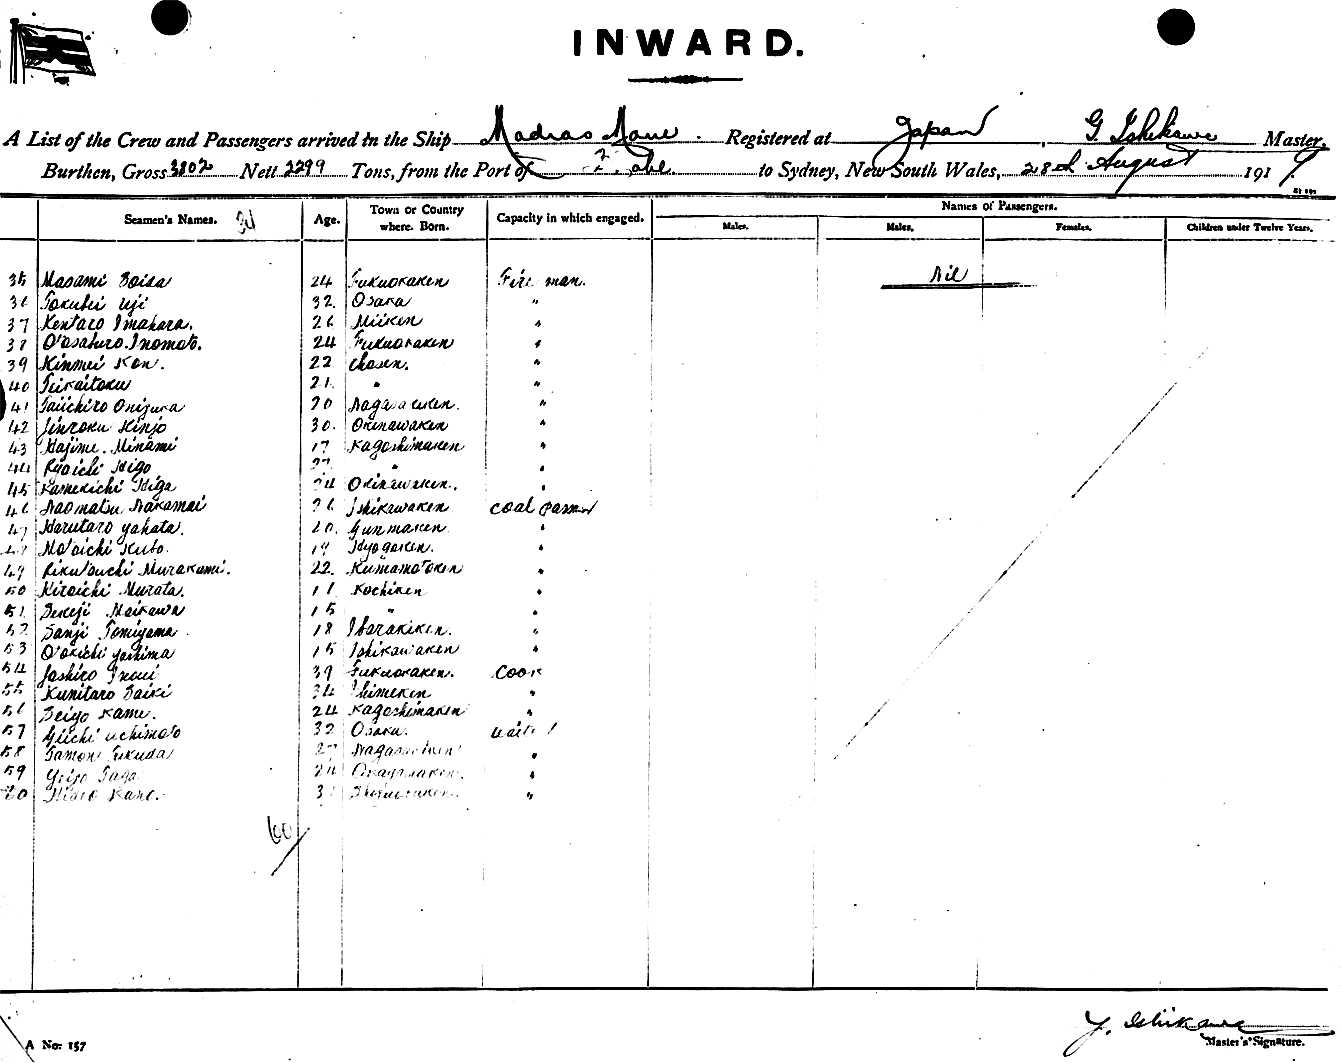 INWARD.
A List of the Crew and Passengers arrived in the Ship Madras Maru. Registered at Japan, G. Ishikawa Master,
Burthen, Gross 3802 Nett 2299 Tons, from the Port of Kobe to Sydney, New South Wales, 28th August 1919
Names of Passengers.
Seamen's Names. Age. Town or Country where Born. Capacity in which engaged. Males. Males. Females. Children under Twelve Years.
Nil
35 Masami 24 Fukuokaken Fire man.
36 Tokuhei Uji 32. Osaka "
37 Kentaro Imahara. 26 Miiken "
38 Otosaburo Inomoto. 24 Fukuokaken "
39 Kinmei Kon. 22 Chosen. "
40 21. " "
41 Taiichiro Onizuka 20 Nagasakiken. "
42 Jinroku Kinjo 30. Okinawaken "
43 Hajime Minami 17 Kagoshimaken "
44 Ryoichi Higo " "
45 Kamekichi Higa 24 Okinawaken. "
46 Naomatsu Nakamai 26 Ishikawaken Coal passer
47 Harutaro Yahata. 20. Gunmaken "
48 Kubo. 19 Hyogoken. "
49 Murakami. 22. Kumamotoken "
50 Kiroichi Murata. Kochiken "
51 Maikawa 15 " "
52 Sanji Tomiyama 18 Ibarakiken. "
53 Otokichi Yashima 15 Ishikawaken "
54 39 Fukuokaken. Cook
55 Kunitaro Saiki 34 "
56 Seiyo Kame. 24 Kagoshimaken "
57 Giichi Uchimoto 32 Osaka.
58 Tamon Fukuda 27 Nagasakiken "
59 Taga 24 "
60 "
60
Y. Ishikawa
Master's Signature.
A No: 157